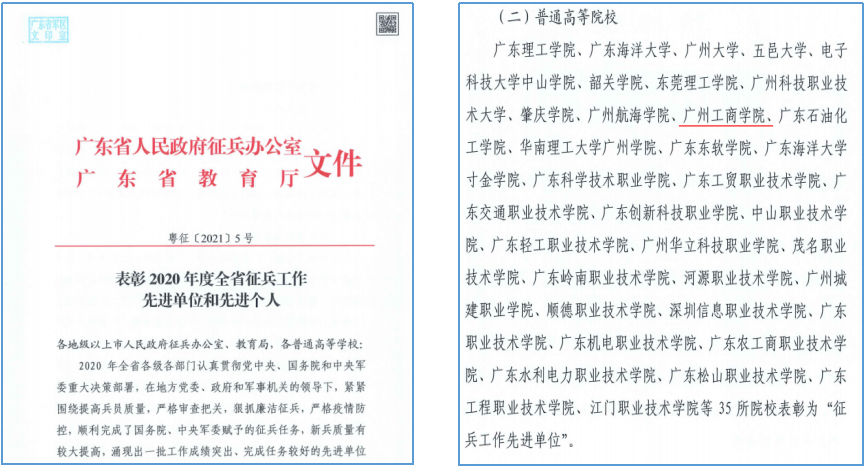 广东省军区
文印室
广东省人民政府征兵办公室
广东省教育厅
文件
粤征〔2021〕5号
表彰 2020 年度全省征兵工作
先进单位和先进个人
各地级以上市人民政府征兵办公室、教育局，各普通高等学校：
2020 年全省各级各部门认真贯彻党中央、国务院和中央军
委重大决策部署，在地方党委、政府和军事机关的领导下，紧紧
围绕提高兵员质量，严格审查把关，狠抓廉洁征兵，严格疫情防
控，顺利完成了国务院、中央军委赋予的征兵任务，新兵质量有
较大提高，涌现出一批工作成绩突出、完成任务较好的先进单位
（二）普通高等院校
广东理工学院、广东海洋大学、广州大学、五邑大学、电子
科技大学中山学院、韶关学院、东莞理工学院、广州科技职业技
术大学、肇庆学院、广州航海学院、广州工商学院、广东石油化
工学院、华南理工大学广州学院、广东东软学院、广东海洋大学
寸金学院、广东科学技术职业学院、广东工贸职业技术学院、广
东交通职业技术学院、广东创新科技职业学院、中山职业技术学
院、广东轻工职业技术学院、广州华立科技职业学院、茂名职业
技术学院、广东岭南职业技术学院、河源职业技术学院、广州城
建职业学院、顺德职业技术学院、深圳信息职业技术学院、广东
职业技术学院、广东机电职业技术学院、广东农工商职业技术学
院、广东水利电力职业技术学院、广东松山职业技术学院、广东
工程职业技术学院、江门职业技术学院等 35 所院校表彰为“征
兵工作先进单位”。